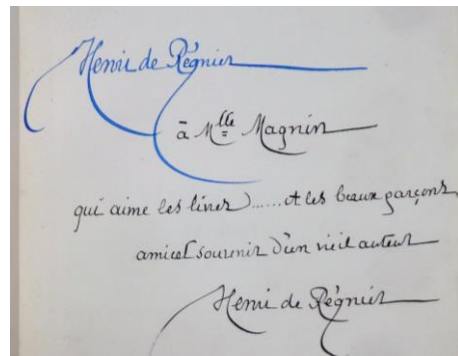 Henri de Régnier
à Mlle Magnin
qui aime les livres)......et les beaux garçons
amical souvenir d'un vieil auteur
Henri de Régnier